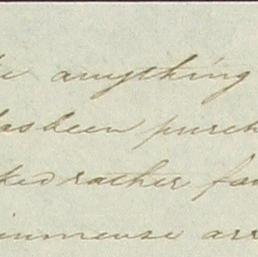 anything
has been purch
rather fa
immense arr